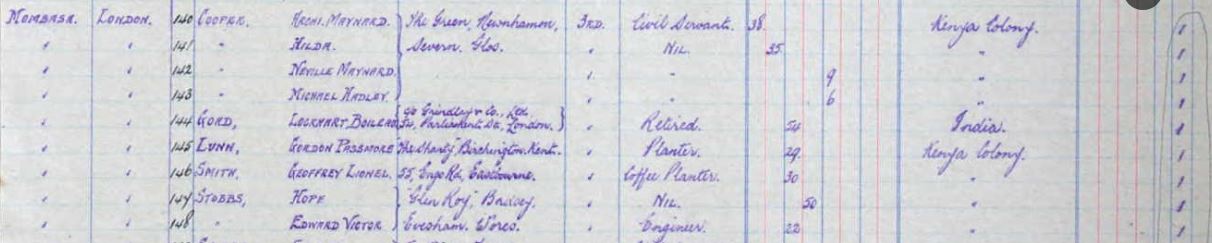 MOMBASA. LONDON. 140 COOPER, MAYNARD. The Green, Newnham on, 3RD. Civil Servant. 38 Kenya Colony. 1
" " 141 " HILDA. Severn. Glos. " NIL. 35 " 1
" " 142 " NEVILLE MAYNARD. " " 9 " 1
" " 143 " MICHAEL HADLEY. " " 6 " 1
" " 144 GORD, LOCKHART BOILEAU c/o Grindley & Co., Ltd. 54, Parliament St, London. " Retired. 54 India. 1
" " 145 LUNN, GORDON PASSMORE "The Shanty," Birchington. Kent. " Planter. 29. Kenya Colony. 1
" " 146 SMITH, GEOFFREY LIONEL 55, Rd, Eastbourne. " Coffee Planter. 30 " 1
" " 147 STOBBS, HOPE "Glen Roy," Badsey. " NIL. 50 " 1
" " 148 " EDWARD VICTOR Evesham. Worcs. " Engineer. 22 " 1